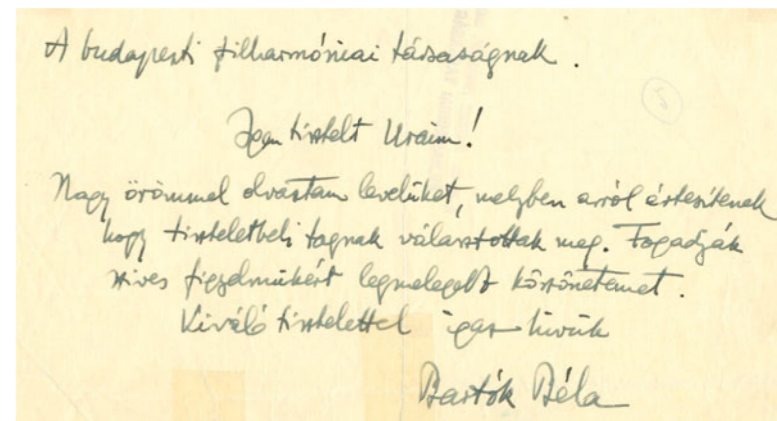 A budapesti filharmóniai társaságnak.
Igen tisztelt Uraim!
Nagy örömmel olvastam levelüket, melyben arról értesítenek
hogy tiszteletbeli tagnak választottak meg. Fogadják
szives figyelmükért legmelegebb köszönetemet.
Kiváló tisztelettel igaz hívük
Bartók Béla